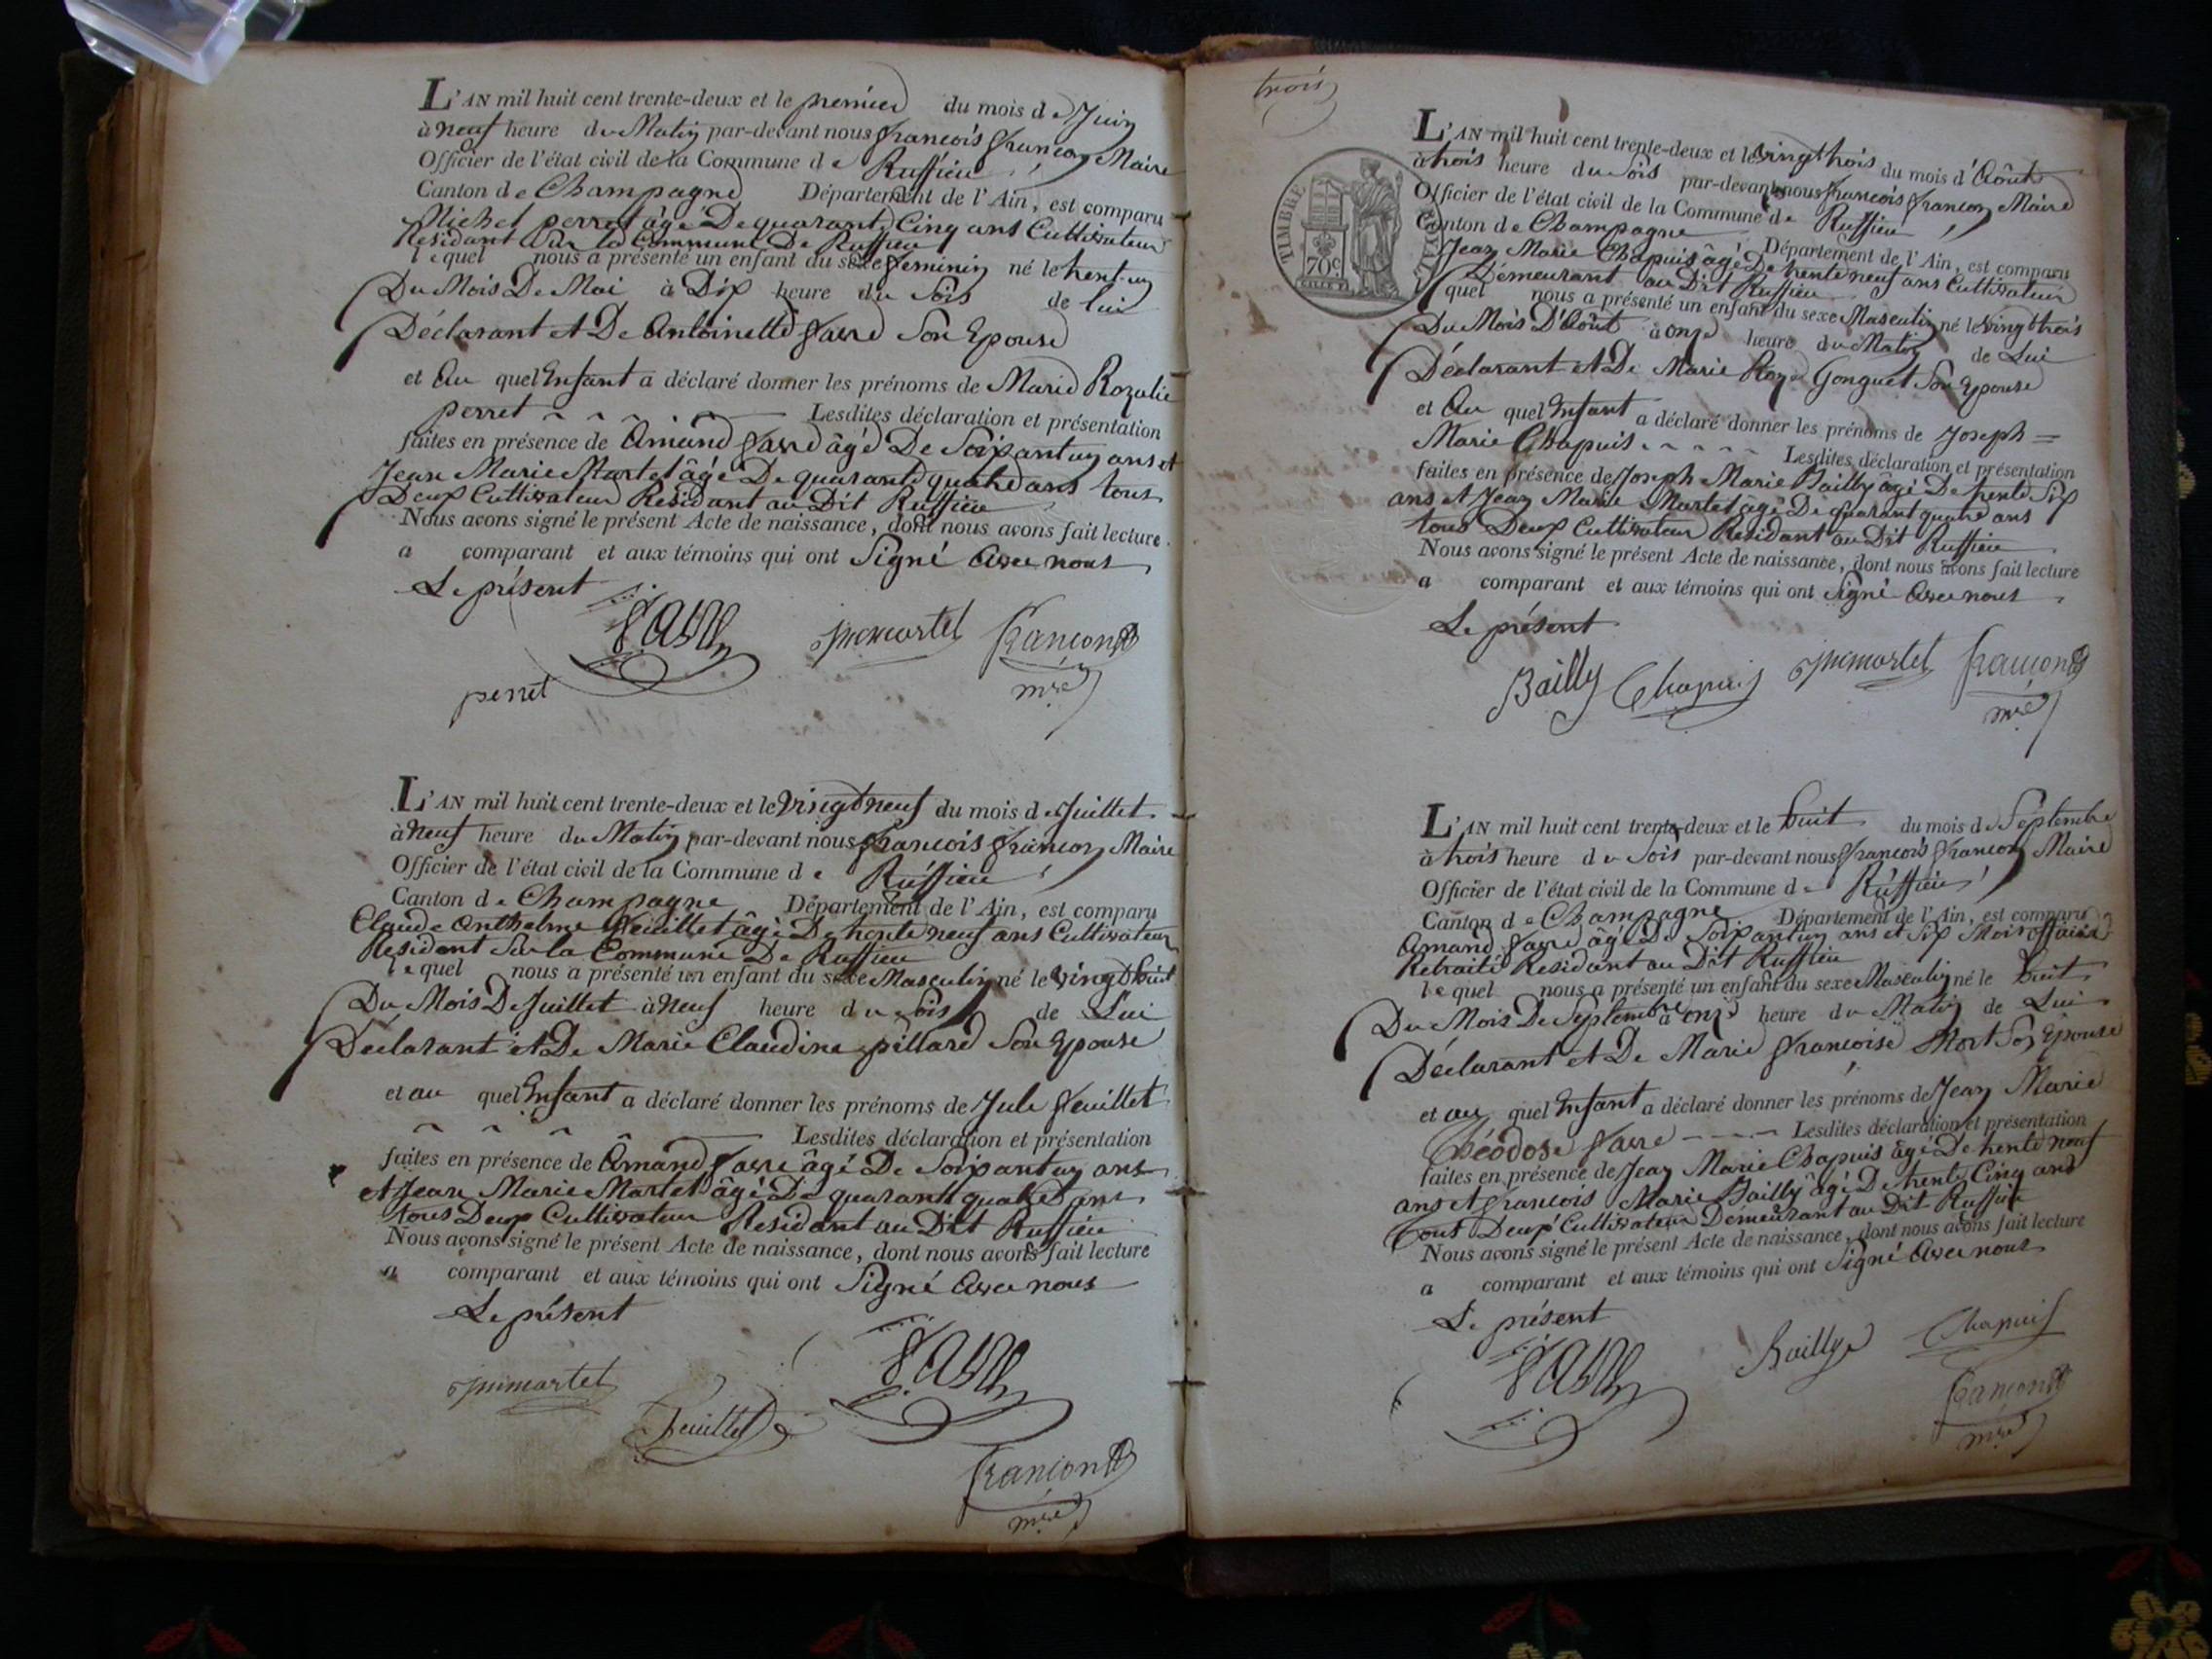 L'AN mil huit cent trente-deux et le premier du mois de Juin
à neuf heure du Matin par-devant nous françois françon Maire
Officier de l'état civil de la Commune de Ruffieu
Canton de Champagne Département de l'Ain, est comparu
Michel perret âgé De quarante Cinq ans Cultivateur
Résidant Sur la Commune De Ruffieu
lequel nous a présenté un enfant du sexe feminin né le trent-un
Du Mois De Mai à Dix heure du Soir de lui
Déclarant et De Antoinette favre Son Epouse
et Au quel Enfant a déclaré donner les prénoms de Marie Rozalie
perret Lesdites déclaration et présentation
faites en présence de Amand favre âgé De Soixant un ans et
Jean Marie Martel âgé De quarante quatre ans tous
Deux Cultivateur Residant au Dit Ruffieu
Nous avons signé le présent Acte de naissance, dont nous avons fait lecture
a comparant et aux témoins qui ont Signé Avec nous
Le présent
favre jmmartel françon
perret mre
L'AN mil huit cent trente-deux et le vingt neuf du mois de Juillet
à neuf heure du Matin par-devant nous françois françon Maire
Officier de l'état civil de la Commune de Ruffieu
Canton de Champagne Département de l'Ain, est comparu
Claude Anthelme feuillet âgé De trente neuf ans Cultivateur
Résidant Sur la Commune De Ruffieu
lequel nous a présenté un enfant du sexe Masculin né le vingt huit
Du Mois De Juillet à neuf heure du Soir de Lui
Déclarant et De Marie Claudine pillard Son Epouse
et au quel Enfant a déclaré donner les prénoms de Jule feuillet
Lesdites déclaration et présentation
faites en présence de Amand favre âgé De Soixant un ans
et Jean Marie Martel âgé De quarante quatre ans
tous Deux Cultivateur Residant au Dit Ruffieu
Nous avons signé le présent Acte de naissance, dont nous avons fait lecture
a comparant et aux témoins qui ont Signé Avec nous
Le présent
jmmartel favre
feuillet
françon
mre
trois
TIMBRE ROYAL
70c
L'AN mil huit cent trente-deux et le vingt trois du mois d'Août
à trois heure du Soir par-devant nous françois françon Maire
Officier de l'état civil de la Commune de Ruffieu
Canton de Champagne Département de l'Ain, est comparu
Jean Marie Chapuis âgé De trente neuf ans Cultivateur
Demeurant au Dit Ruffieu
quel nous a présenté un enfant du sexe Masculin né le vingt trois
Du Mois D'Août à onze heure du Matin de Lui
Déclarant et De Marie Roze Gonguet Son Epouse
et Au quel Enfant a déclaré donner les prénoms de Joseph =
Marie Chapuis Lesdites déclaration et présentation
faites en présence de Joseph Marie Bailly âgé De trente Six
ans et Jean Marie Martel âgé De quarant quatre ans
tous Deux Cultivateur Residant au Dit Ruffieu
Nous avons signé le présent Acte de naissance, dont nous avons fait lecture
a comparant et aux témoins qui ont Signé Avec nous
Le présent
Bailly Chapuis jmmartel françon
mre
L'AN mil huit cent trente-deux et le huit du mois de Septembre
à trois heure du Soir par-devant nous françois françon Maire
Officier de l'état civil de la Commune de Ruffieu
Canton de Champagne Département de l'Ain, est comparu
Amand favre âgé De Soixant un ans et Six Mois officier
Retraité Residant au Dit Ruffieu
lequel nous a présenté un enfant du sexe Masculin né le huit
Du Mois De Septembre à onze heure du Matin de Lui
Déclarant et De Marie françoise Mort Son Epouse
et au quel Enfant a déclaré donner les prénoms de Jean Marie
Théodose favre Lesdites déclaration et présentation
faites en présence de Jean Marie Chapuis âgé De trente neuf
ans et françois Marie Bailly âgé De trente Cinq ans
tous Deux Cultivateur Demeurant au Dit Ruffieu
Nous avons signé le présent Acte de naissance, dont nous avons fait lecture
a comparant et aux témoins qui ont Signé Avec nous
Le présent
favre Bailly Chapuis
françon
mre